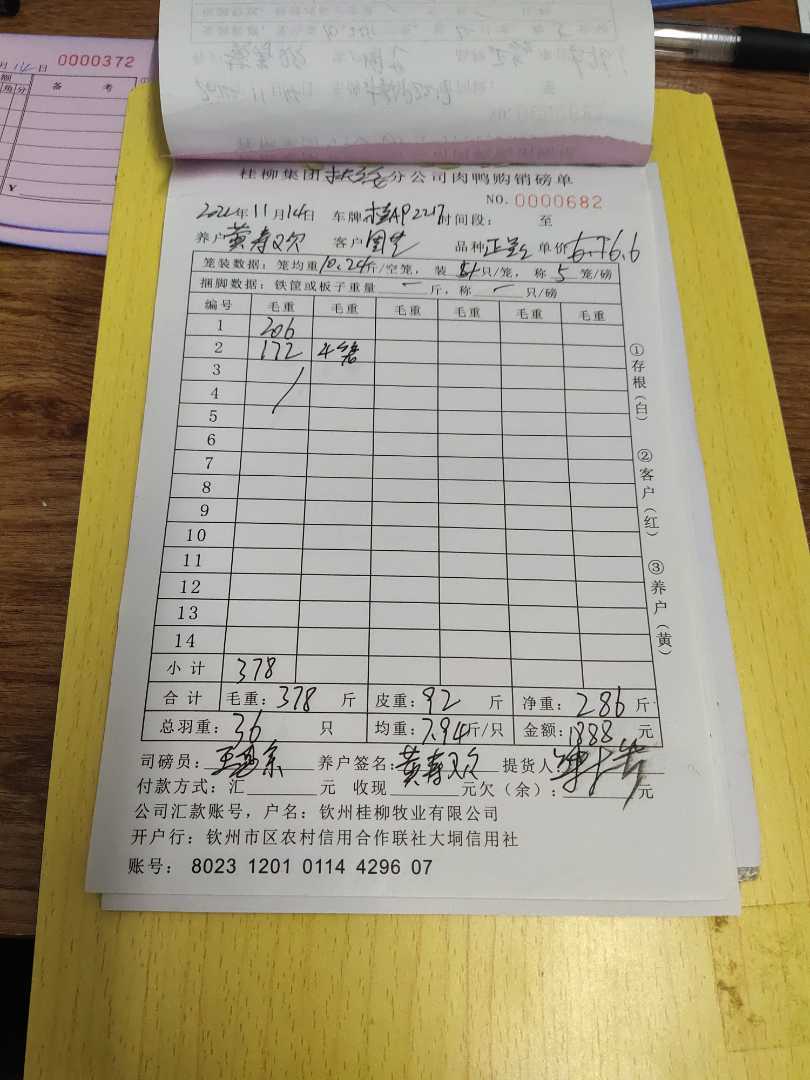 月14日 0000372
额 备 考
角 分
¥
桂柳集团 分公司肉鸭购销磅单
NO. 0000682
2022年11月14日 车牌 桂AP2217 时间段: 至
养户 黄寿 客户 品种 单价 6.6
笼装数据: 笼均重10.24斤/空笼, 装 只/笼, 称 5 笼/磅
捆脚数据: 铁筐或板子重量 — 斤, 称 — 只/磅
编号 毛重 毛重 毛重 毛重 毛重 毛重
1 206
2 172 4笼
3
4
5
6
7
8
9
10
11
12
13
14
小计 378
合计 毛重: 378 斤 皮重: 92 斤 净重: 286 斤
总羽重: 36 只 均重: 7.94斤/只 金额: 1888 元
司磅员: 养户签名: 黄寿 提货人:
付款方式: 汇 元 收现 元欠(余): 元
公司汇款账号, 户名: 钦州桂柳牧业有限公司
开户行: 钦州市区农村信用合作联社大垌信用社
账号: 8023 1201 0114 4296 07
①存根(白)
②客户(红)
③养户(黄)